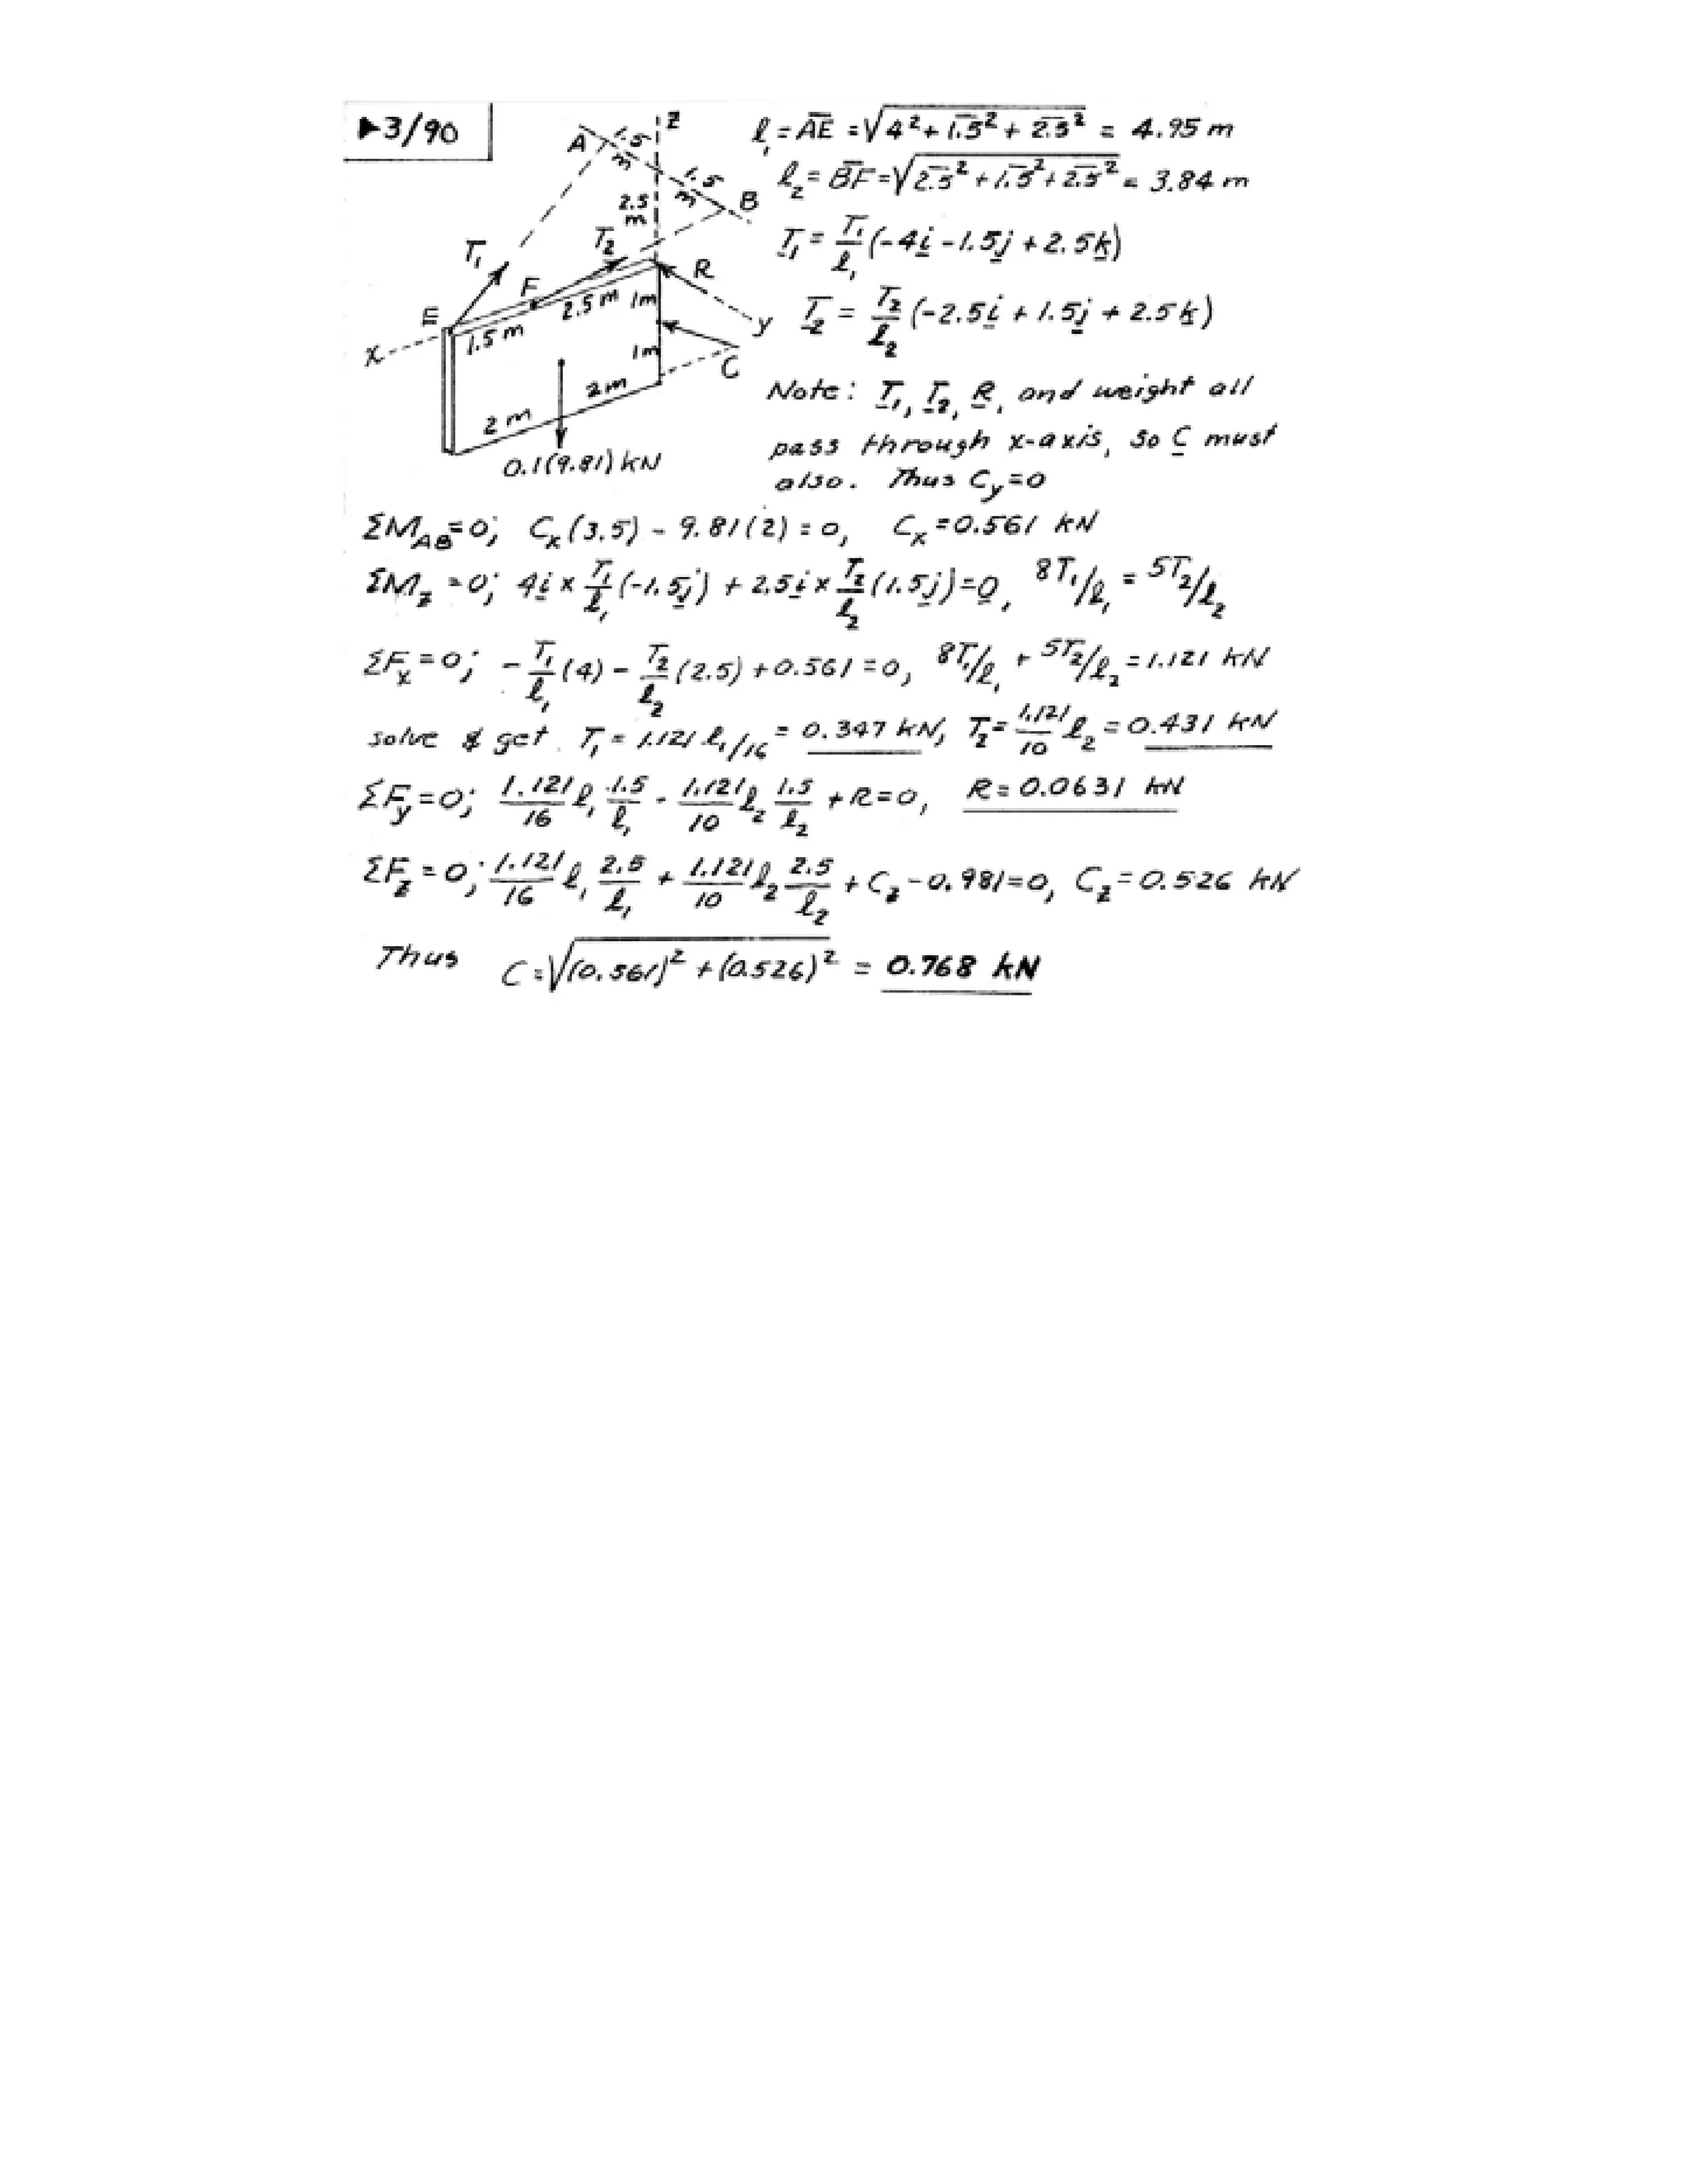 ▶3/90
z
A 1.5 m
1.5 m B
2.5 m
T₁ T₂
R
E F 2.5 m 1m
y
x 1.5 m
1m C
2m 2m
0.1(9.81) kN
l₁ = A̅E̅ = √(4² + 1.5² + 2.5²) = 4.95 m
l₂ = B̅F̅ = √(2.5² + 1.5² + 2.5²) = 3.84 m
T₁ = T₁/l₁ (-4i - 1.5j + 2.5k)
T₂ = T₂/l₂ (-2.5i + 1.5j + 2.5k)
Note: T₁, T₂, R, and weight all
pass through x-axis, so C must
also. Thus Cy = 0
ΣM_AB = 0; Cx(3.5) - 9.81(2) = 0, Cx = 0.561 kN
ΣMz = 0; 4i × T₁/l₁ (-1.5j) + 2.5i × T₂/l₂ (1.5j) = 0, 8T₁/l₁ = 5T₂/l₂
ΣFx = 0; - T₁/l₁ (4) - T₂/l₂ (2.5) + 0.561 = 0, 8T₁/l₁ + 5T₂/l₂ = 1.121 kN
solve & get T₁ = 1.121 l₁/16 = 0.347 kN, T₂ = 1.121/10 l₂ = 0.431 kN
ΣFy = 0; 1.121/16 l₁ 1.5/l₁ - 1.121/10 l₂ 1.5/l₂ + R = 0, R = 0.0631 kN
ΣFz = 0; 1.121/16 l₁ 2.5/l₁ + 1.121/10 l₂ 2.5/l₂ + Cz - 0.981 = 0, Cz = 0.526 kN
Thus C = √((0.561)² + (0.526)²) = 0.768 kN